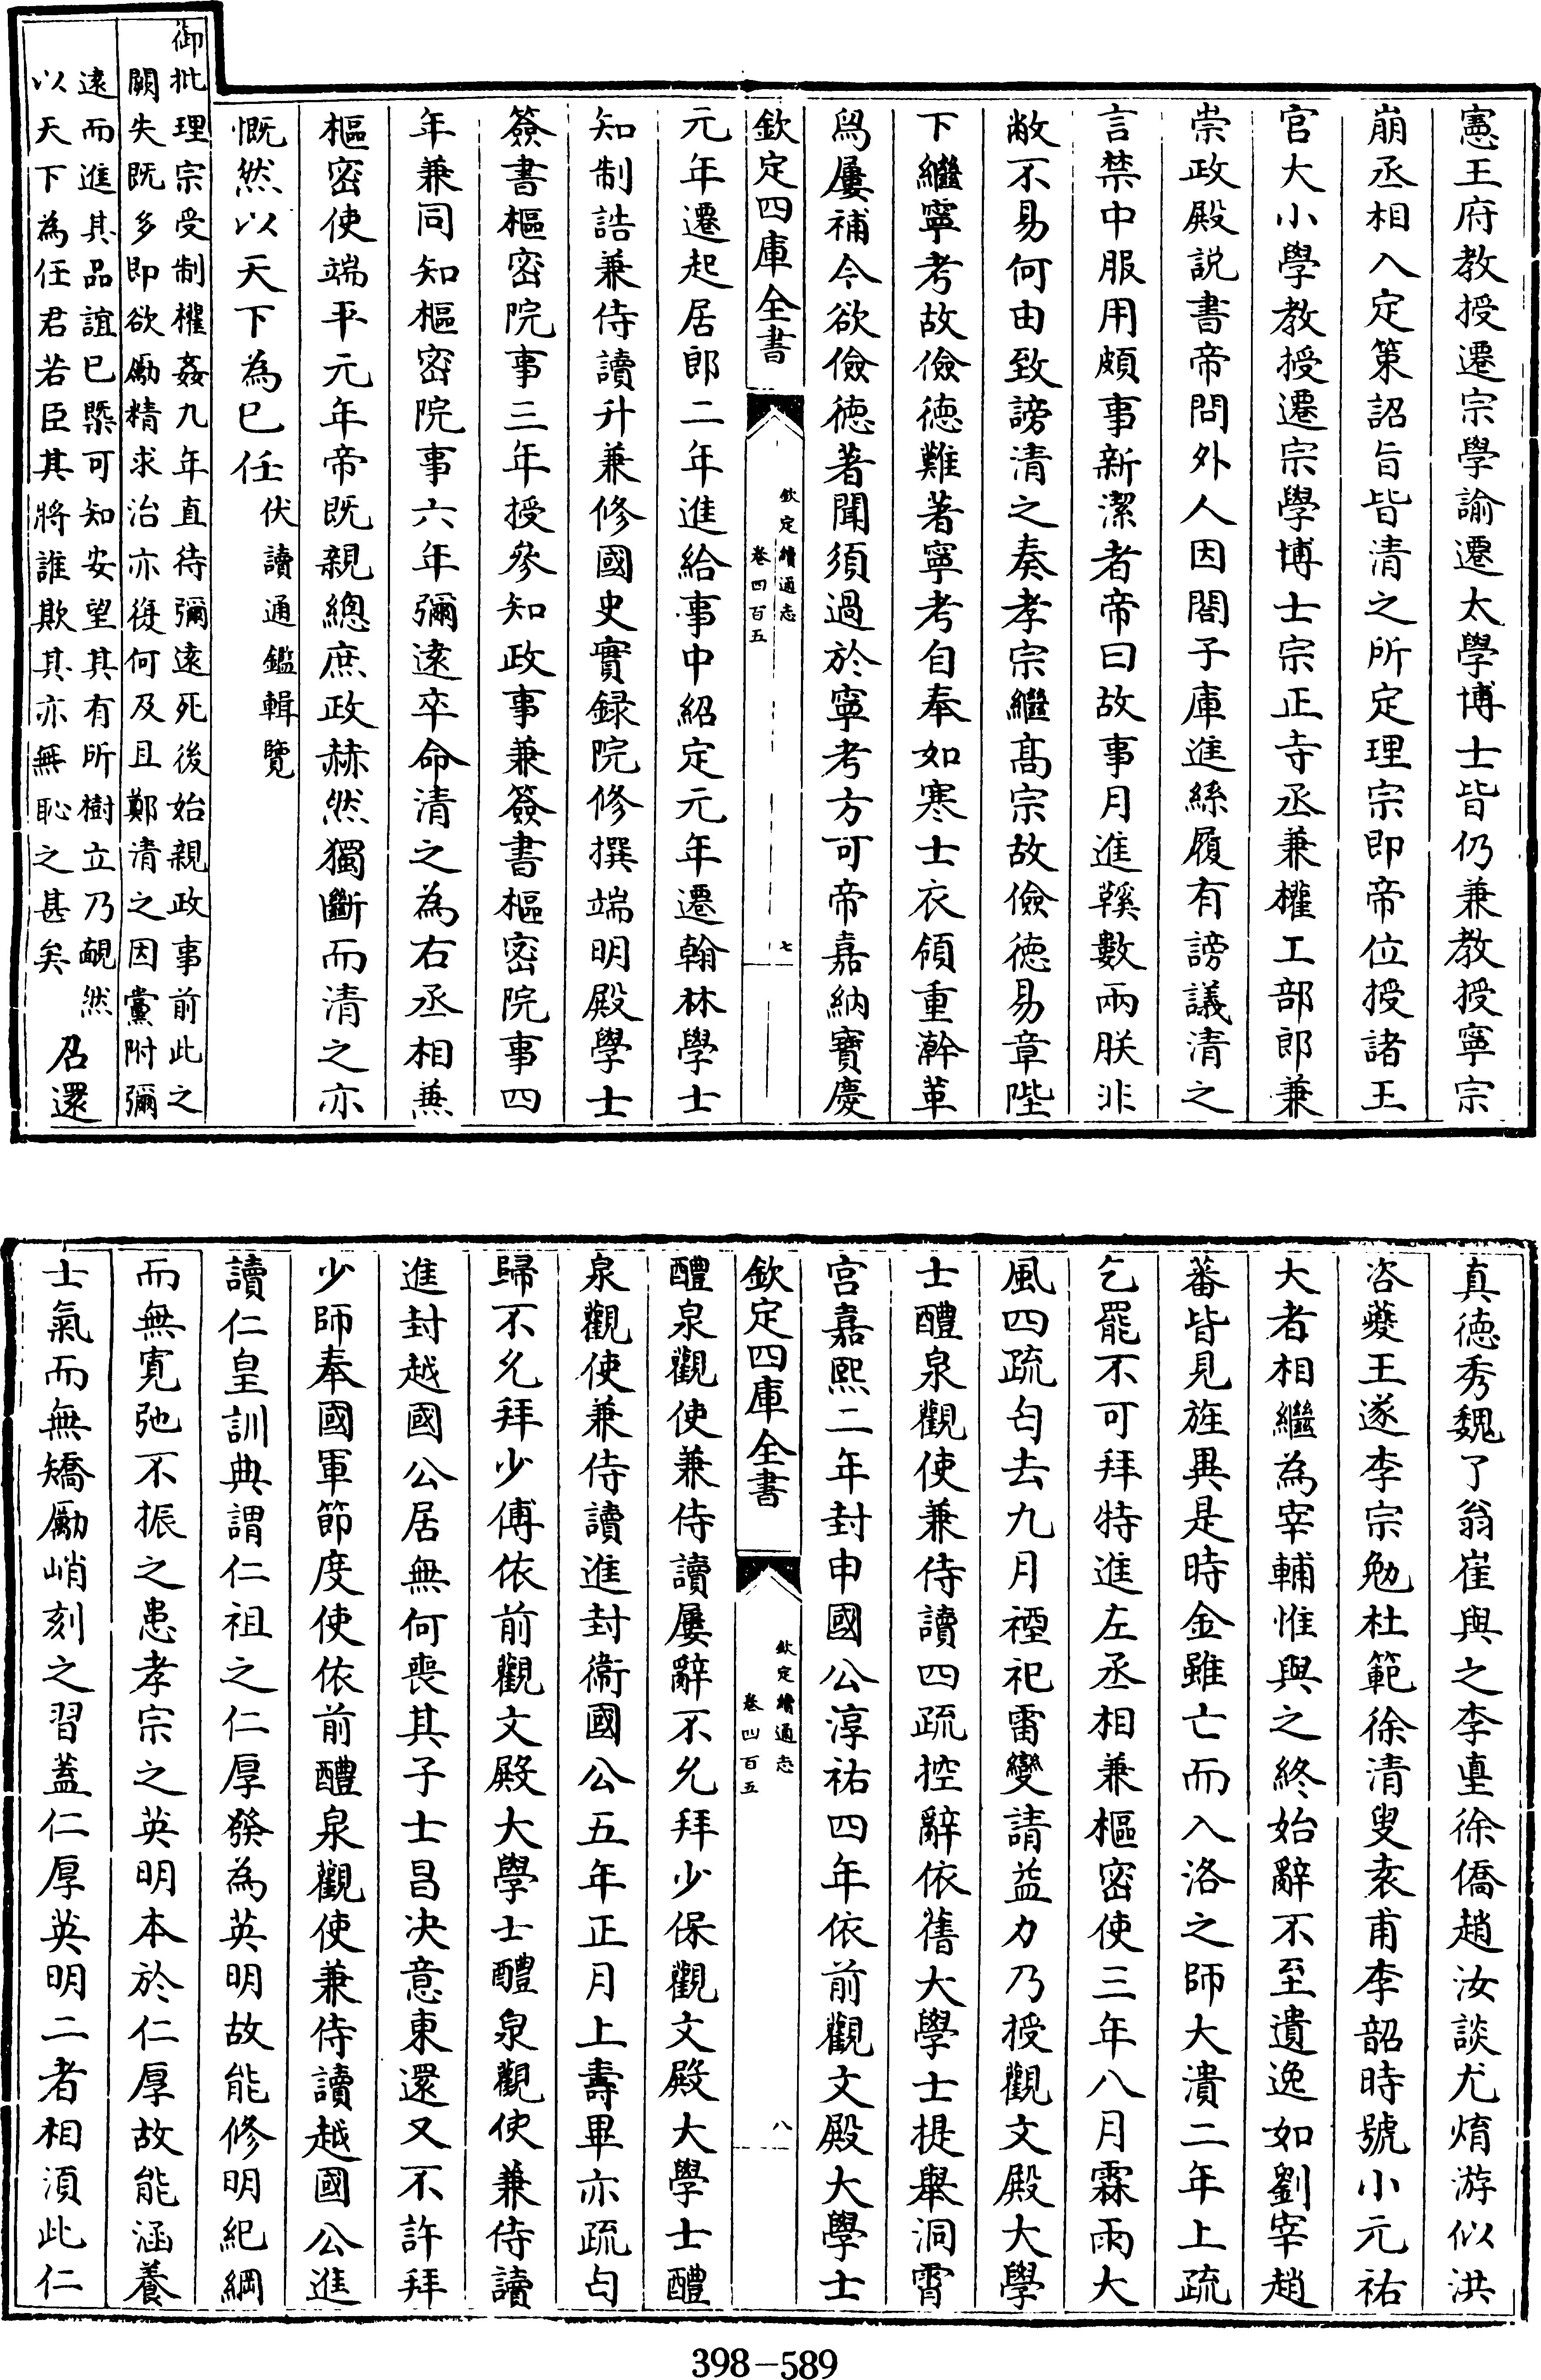 憲王府教授遷宗學諭遷太學博士皆仍兼教授寧宗
崩丞相入定策詔旨皆清之所定理宗即帝位授諸王
宫大小學教授遷宗學博士宗正寺丞兼權工部郎兼
崇政殿説書帝問外人因閤子庫進絲履有謗議清之
言禁中服用頗事新潔者帝曰故事月進鞵數兩朕非
敝不易何由致謗清之奏孝宗繼髙宗故儉徳易章陛
下繼寧考故儉徳難著寧考自奉如寒士衣領重澣革
舄屢補今欲儉徳著聞須過於寧考方可帝嘉納寳慶
欽定四庫全書
欽定續通志
卷四百五
七
元年遷起居郎二年進給事中紹定元年遷翰林學士
知制誥兼侍讀升兼修國史實録院修撰端明殿學士
簽書樞密院事三年授參知政事兼簽書樞密院事四
年兼同知樞密院事六年彌遠卒命清之為右丞相兼
樞密使端平元年帝既親總庶政赫然獨斷而清之亦
慨然以天下為已任
伏讀通鑑輯覽
御批理宗受制權姦九年直待彌遠死後始親政事前此之
闕失既多即欲勵精求治亦復何及且鄭清之因黨附彌
遠而進其品誼已槩可知安望其有所樹立乃靦然
以天下為任君若臣其將誰欺其亦無恥之甚矣
召還
真徳秀魏了翁崔與之李𡌴徐僑趙汝談尤焴游似洪
咨夔王遂李宗勉杜範徐清叟袁甫李韶時號小元祐
大者相繼為宰輔惟與之終始辭不至遺逸如劉宰趙
蕃皆見旌異是時金雖亡而入洛之師大潰二年上疏
乞罷不可拜特進左丞相兼樞密使三年八月霖雨大
風四疏匄去九月禋祀雷變請益力乃授觀文殿大學
士醴泉觀使兼侍讀四疏控辭依舊大學士提舉洞霄
宫嘉熙二年封申國公淳祐四年依前觀文殿大學士
欽定四庫全書
欽定續通志
卷四百五
八
醴泉觀使兼侍讀屢辭不允拜少保觀文殿大學士醴
泉觀使兼侍讀進封衛國公五年正月上壽畢亦疏匄
歸不允拜少傅依前觀文殿大學士醴泉觀使兼侍讀
進封越國公居無何喪其子士昌决意東還又不許拜
少師奉國軍節度使依前醴泉觀使兼侍讀越國公進
讀仁皇訓典謂仁祖之仁厚發為英明故能修明紀綱
而無寛弛不振之患孝宗之英明本於仁厚故能涵養
士氣而無矯勵峭刻之習蓋仁厚英明二者相湏此仁
398-589